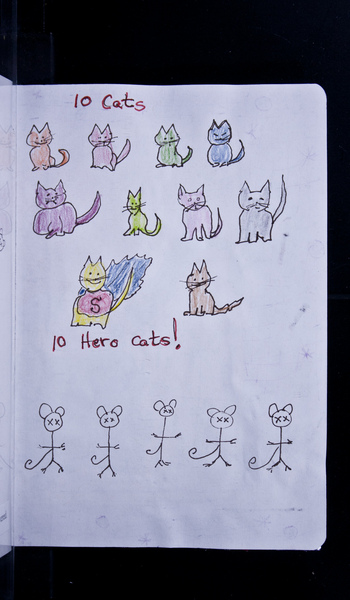 10 Cats
S
10 Hero Cats!